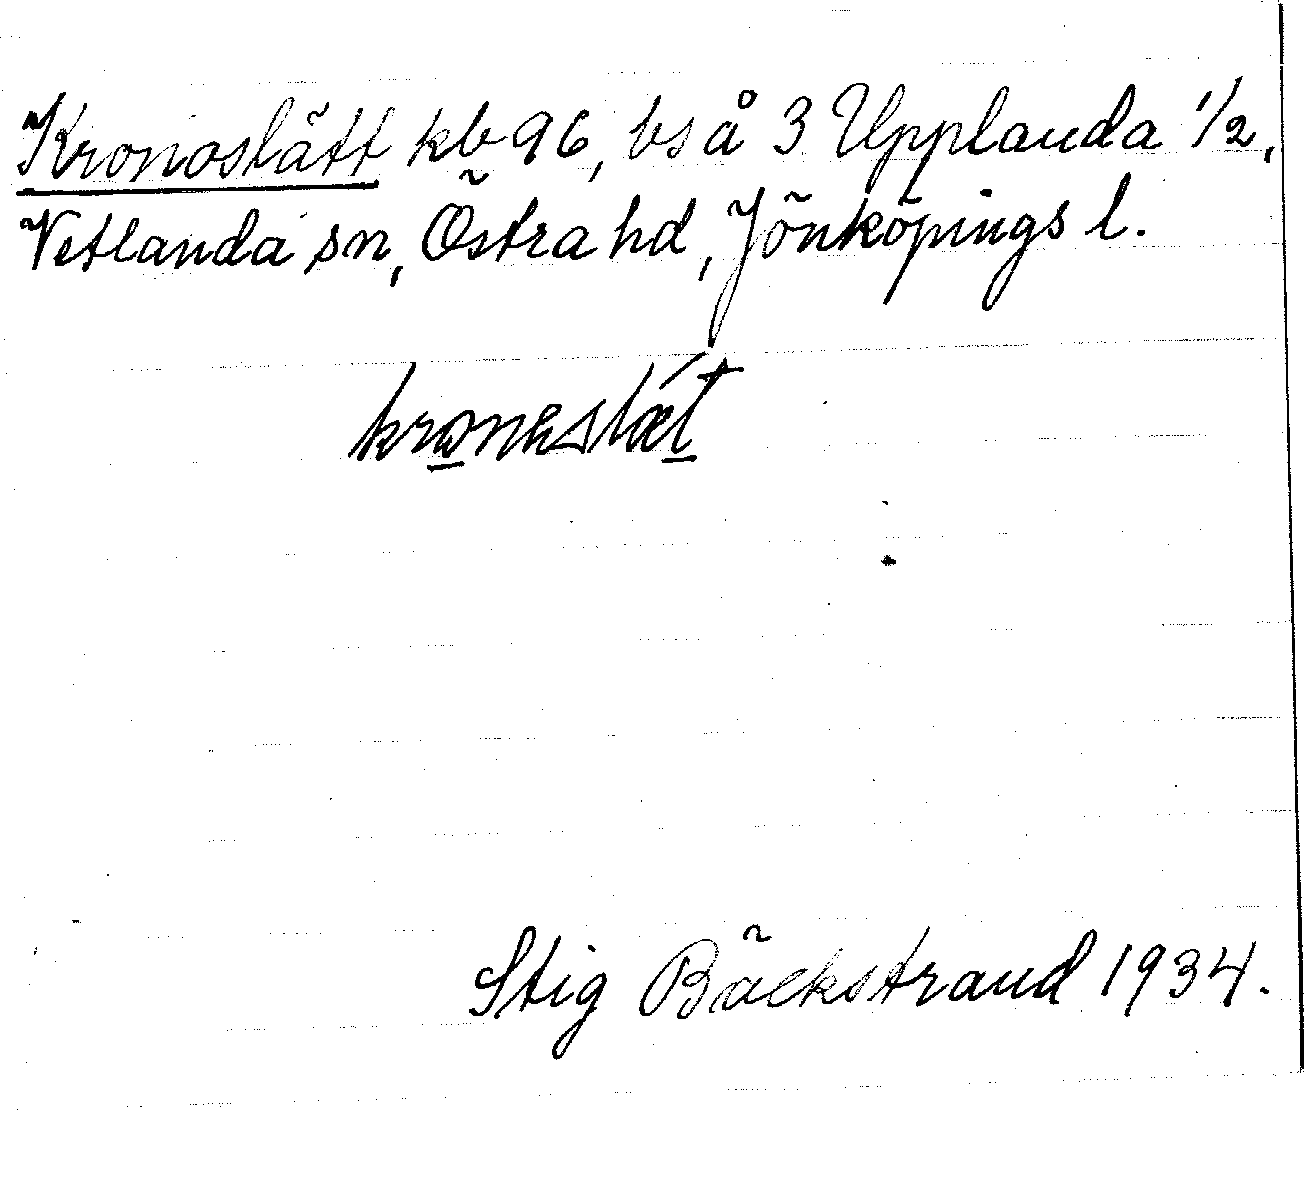 Kronoslätt kb 96, bs å 3 Upplanda 1/2,
Vetlanda sn, Östra hd, Jönköpings l.
Stig Bäckstrand 1934.